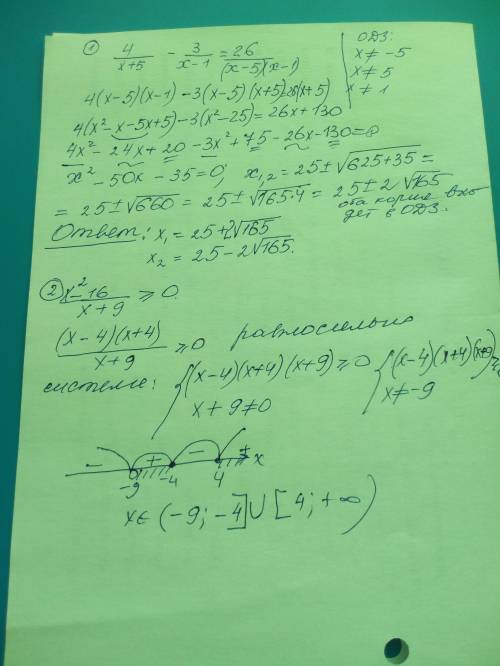 ① 4/(x+5) - 3/(x-1) = 26/((x-5)(x-1))
ОДЗ:
x ≠ -5
x ≠ 5
x ≠ 1
4(x-5)(x-1) - 3(x-5)(x+5) = 26(x+5)
4(x² - x - 5x + 5) - 3(x² - 25) = 26x + 130
4x² - 24x + 20 - 3x² + 75 - 26x - 130 = 0
x² - 50x - 35 = 0; x₁,₂ = 25 ± √(625+35) =
= 25 ± √660 = 25 ± √(165·4) = 25 ± 2√165
оба корня вхо
дят в ОДЗ.
Ответ: x₁ = 25 + 2√165
x₂ = 25 - 2√165.
② (x² - 16)/(x + 9) ≥ 0
((x-4)(x+4))/(x+9) ≥ 0 равносильно
системе: { (x-4)(x+4)(x+9) ≥ 0 { (x-4)(x+4)(x+9) ≥ 0
x + 9 ≠ 0 x ≠ -9
- + - + x
-9 -4 4
x ∈ (-9; -4] ∪ [4; +∞)